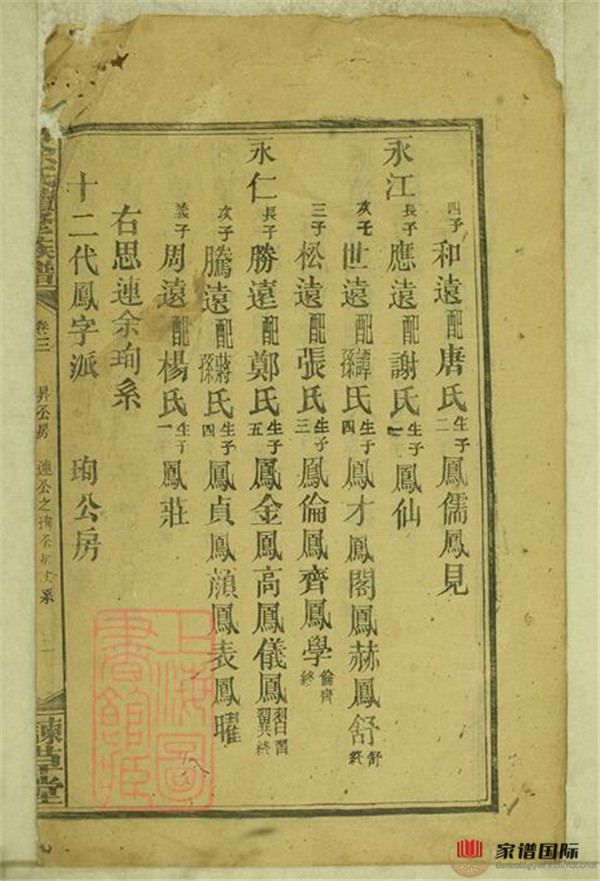 四子和遠配唐氏生子二鳳儒鳳見
永江長子應遠配謝氏生子一鳳仙
次子世遠配譚孫氏生子四鳳才鳳閣鳳赫鳳舒舒終
三子松遠配張氏生子三鳳倫鳳齊鳳學倫齊終
永仁長子勝遠配鄭氏生子五鳳金鳳高鳳儀鳳
次子騰遠配蔣孫氏生子四鳳貞鳳顔鳳表鳳曜
義子周遠配楊氏生子一鳳莊
右思連余珣系
十二代鳳字派 珣公房
族譜
卷三
昇公房 連公之珣
系
上海圖書館
家谱国际